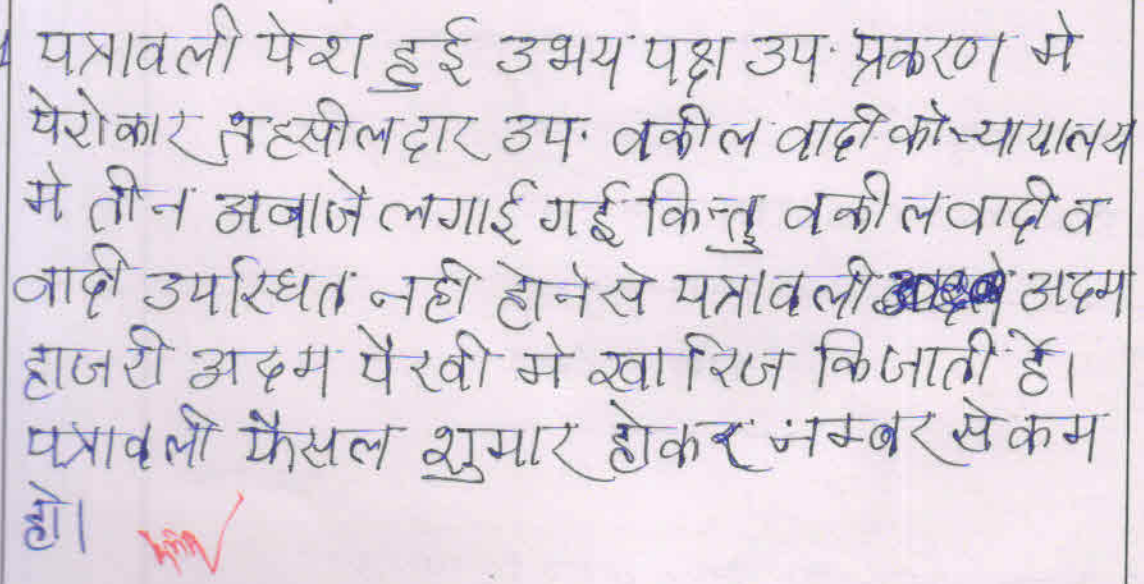 पत्रावली पेश हुई उभय पक्ष उप. प्रकरण मे
पेरोकार तहसीलदार उप. वकील वादी को न्यायालय
मे तीन अबाजे लगाई गई किन्तु वकील वादी व
वादी उपस्थित नही होने से पत्रावली अदम
हाजरी अदम पैरवी मे खारिज कि जाती है।
पत्रावली फैसल शुमार होकर नम्बर से कम
हो।